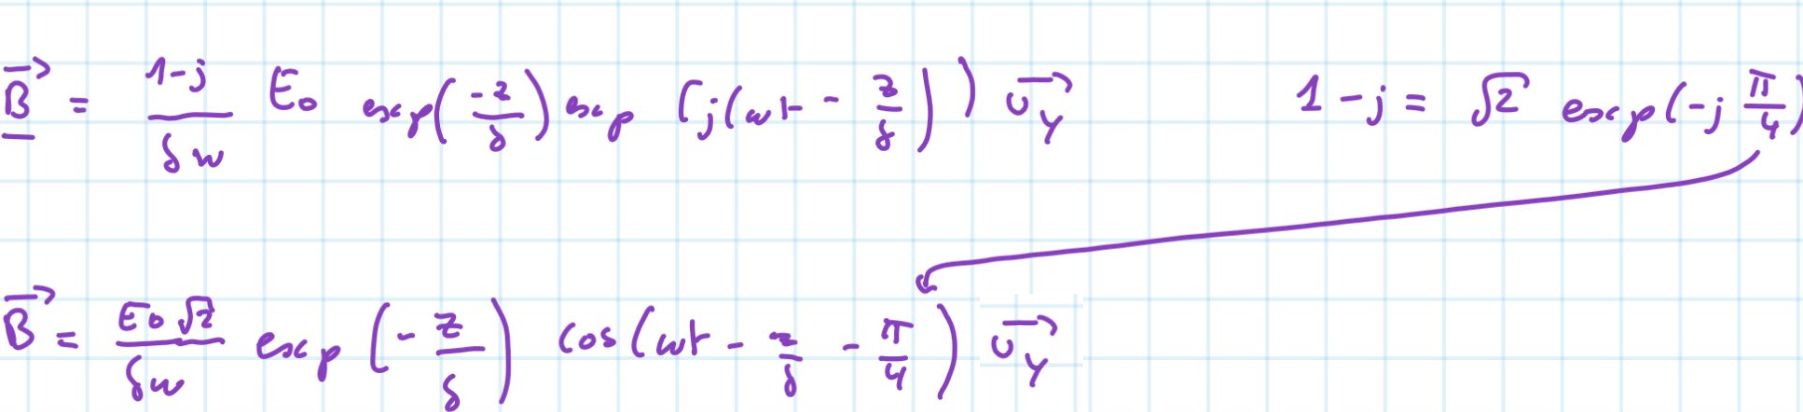 $\underline{\vec{B}} = \frac{1-j}{\delta \omega} E_0 \exp\left(\frac{-z}{\delta}\right) \exp\left(j\left(\omega t - \frac{z}{\delta}\right)\right) \vec{u_y}$ $1-j = \sqrt{2} \exp\left(-j\frac{\pi}{4}\right)$
$\vec{B} = \frac{E_0 \sqrt{2}}{\delta \omega} \exp\left(-\frac{z}{\delta}\right) \cos\left(\omega t - \frac{z}{\delta} - \frac{\pi}{4}\right) \vec{u_y}$